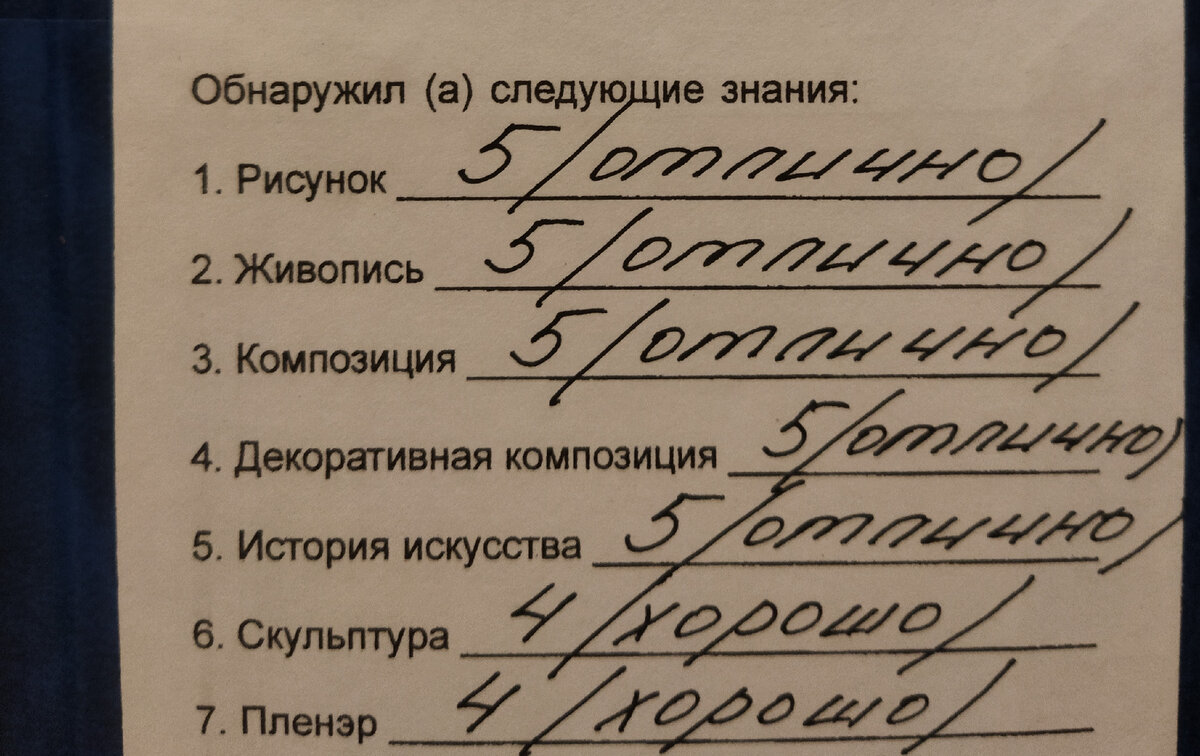 Обнаружил (а) следующие знания:
1. Рисунок 5 /отлично/
2. Живопись 5 /отлично/
3. Композиция 5 /отлично/
4. Декоративная композиция 5 /отлично/
5. История искусства 5 /отлично/
6. Скульптура 4 /хорошо/
7. Пленэр 4 /хорошо/